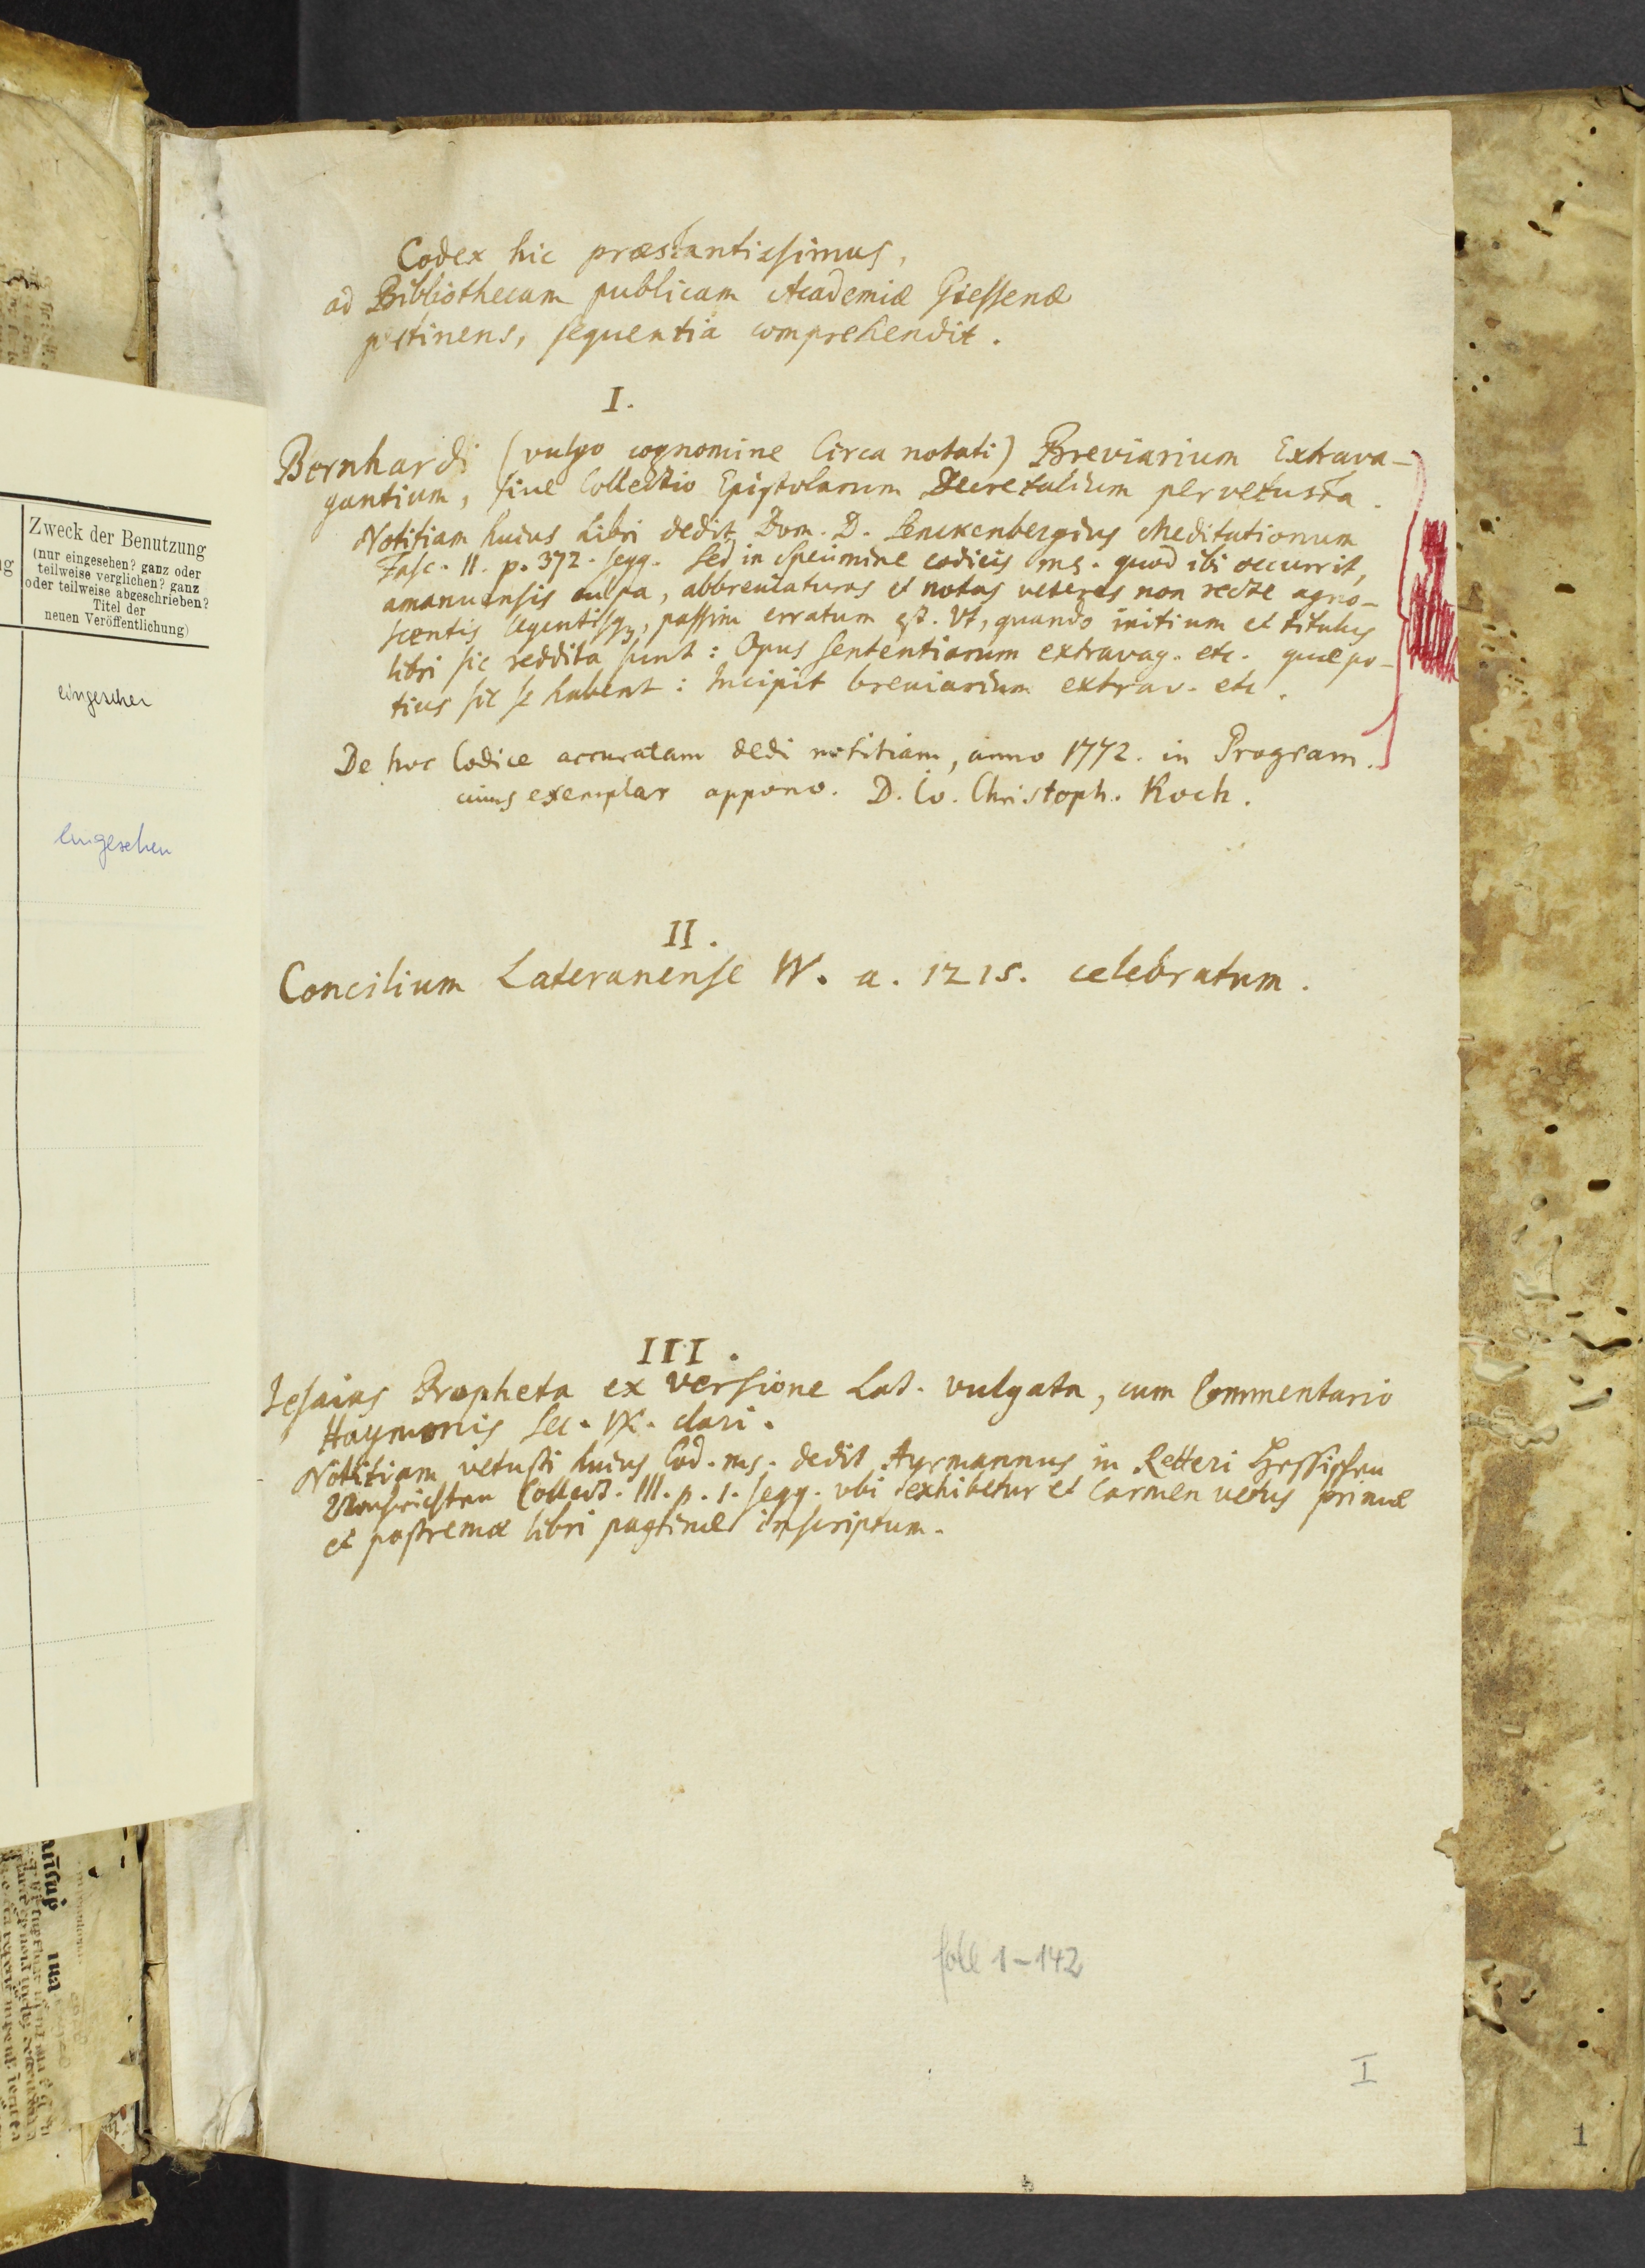 Codex hic præstantissimus,
ad Bibliothecam publicam Academiæ Giessenæ
pertinens, sequentia comprehendit.
I.
Bernhardi (vulgo cognomine Circa notati) Breviarium Extrava-
gantium, siue Collectio Epistolarum Decretalium pervetusta.
Notitiam huius Libri dedit Dom. D. Senckenbergius Meditationum
Fasc. II. p. 372. seqq. Sed in specimine codicis ms. quod ibi occurrit,
amanuensis culpa, abbreuiaturas et notas veteres non recte agno-
scentis legentisqꝫ, passim erratum est. Vt, quando initium et titulus
libri sic reddita sunt: Opus sententiarum extravag. etc. quæ po-
tius sic se habent: Incipit breuiarium extrav. etc.
De hoc Codice accuratam dedi notitiam, anno 1772. in Program.
cuius exemplar appono. D. Io. Christoph. Koch.
II.
Concilium Lateranense IV. a. 1215. celebratum.
III.
Iesaias Propheta ex versione Lat. vulgata, cum Commentario
Haymonis Sec. IX. clari.
Notitiam vetusti huius Cod. ms. dedit Ayrmannus in Retteri Hessischen
Nachrichten Collect. III. p. 1. seqq. vbi exhibetur et Carmen vetus primæ
et postremæ libri paginæ inscriptum.
foll 1-142
I
1
Zweck der Benutzung
(nur eingesehen? ganz oder
teilweise verglichen? ganz
oder teilweise abgeschrieben?
Titel der
neuen Veröffentlichung)
eingesehen
eingesehen